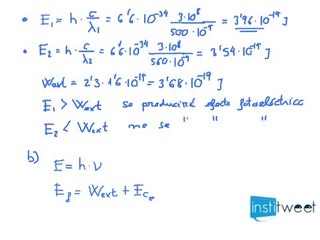 • E₁ = h · c/λ₁ = 6'6 · 10⁻³⁴ 3·10⁸/500·10⁻⁹ = 3'96 · 10⁻¹⁹ J
• E₂ = h · c/λ₂ = 6'6 · 10⁻³⁴ 3·10⁸/560·10⁻⁹ = 3'54 · 10⁻¹⁹ J
Wext = 2'3 · 1'6 · 10⁻¹⁹ = 3'68 · 10⁻¹⁹ J
E₁ > Wext se producirá efecto fotoeléctrico
E₂ < Wext no se " " "
b)
E = h · ν
E_f = Wext + Ec
institweet